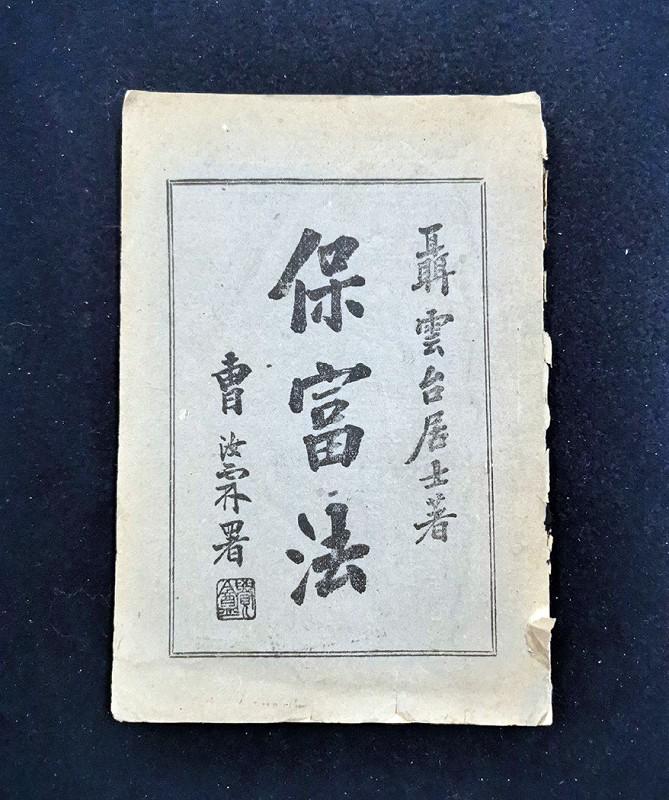 聶雲台居士著
保富法
曹汝霖署